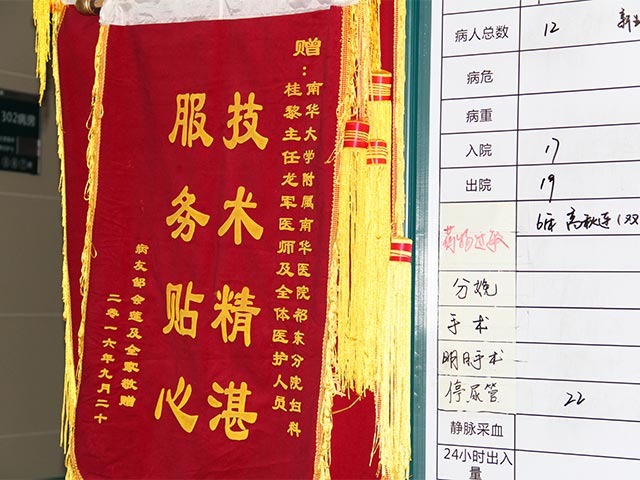 302病房
赠：南华大学附属南华医院祁东分院妇科
桂黎主任龙军医师及全体医护人员
技术精湛
服务贴心
病友邹会莲及全家敬赠
二零一六年九月二十
病人总数 12
病危
病重
入院 17
出院 19
药物过敏 6床 高秋连(双
分娩
手术
明日手术
停尿管 22
静脉采血
24小时出入量